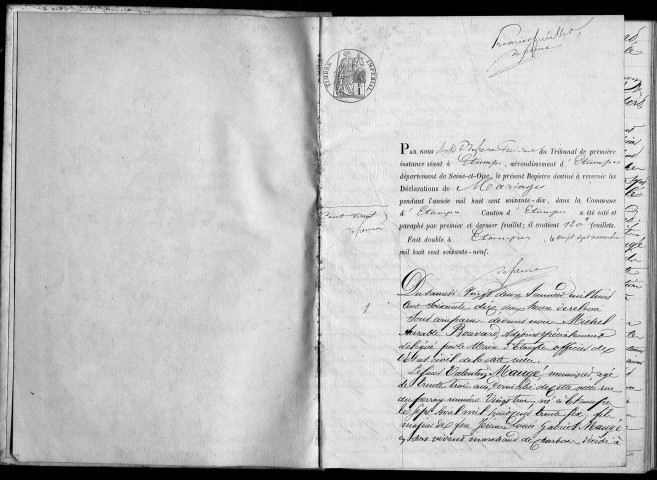 Premier feuillet
TIMBRE IMPÉRIAL
PAR nous du Tribunal de première
instance séant à Etampes, arrondissement d'Etampes
département de Seine-et-Oise, le présent Registre destiné à recevoir les
Déclarations de Mariages
pendant l'année mil huit cent soixante-dix, dans la Commune
d'Etampes Canton d'Etampes a été coté et
paraphé par premier et dernier feuillet; il contient 120 feuillets.
Fait double à Etampes, le vingt sept novembre
mil huit cent soixante-neuf.
Du samedi Vingt deux Janvier mil huit
cent soixante dix, deux heures
Sont comparus devant nous Michel
Aimable Bouvard, Adjoint spécialement
délégué par le Maire d'Etampes officier de
l'Etat civil de la dite ville.
Valentin Maugé, menuisier, âgé
de trente trois ans, domicilié de cette ville rue
du Perray numéro Vingt trois, né à Etampes
le sept Avril mil huit cent trente six, fils
majeur de feu Louis Gabriel Maugé
en son vivant marchand de charbon décédé à